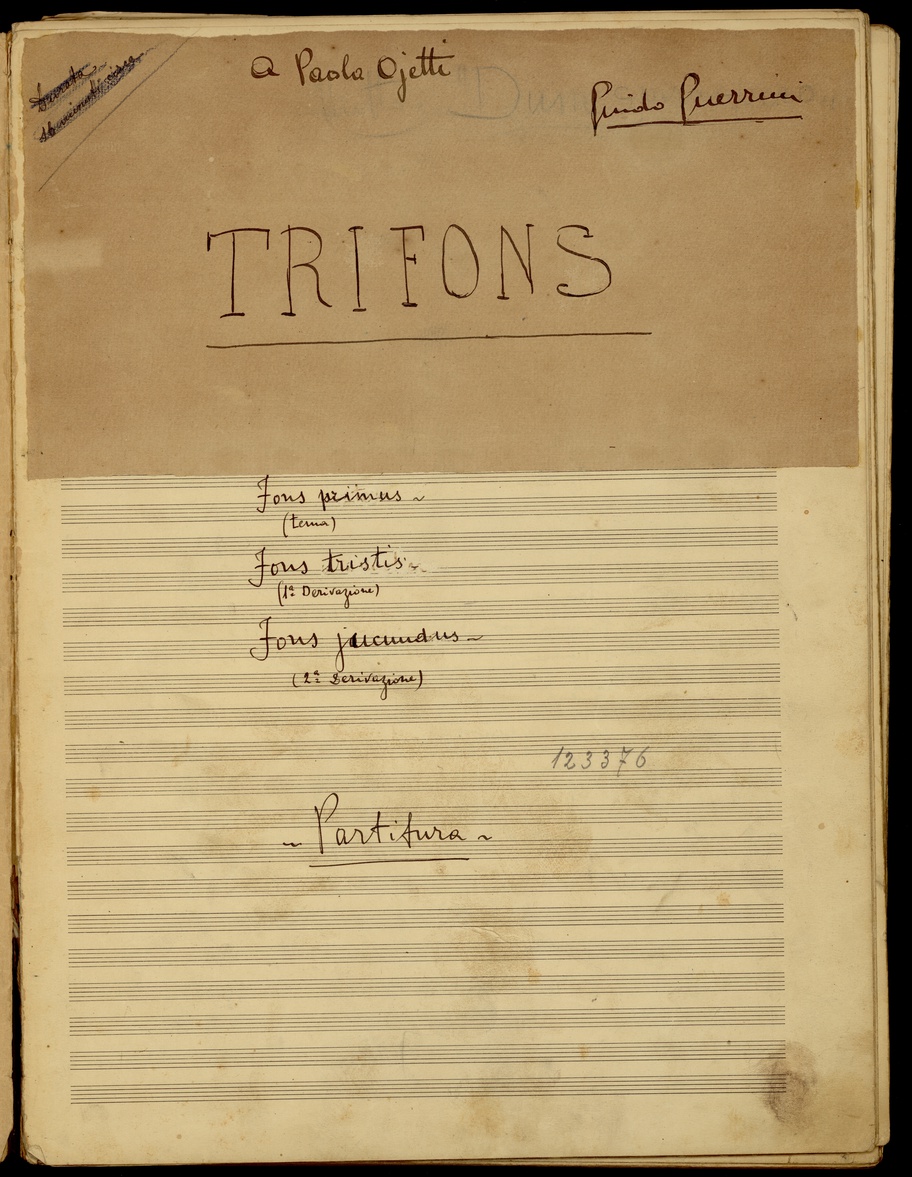 A Paola Ojetti
Guido Guerrini
TRIFONS
Fons primus ~
(tema)
Fons tristis ~
(1ª Derivazione)
Fons jucundus ~
(2ª Derivazione)
123376
~ Partitura ~